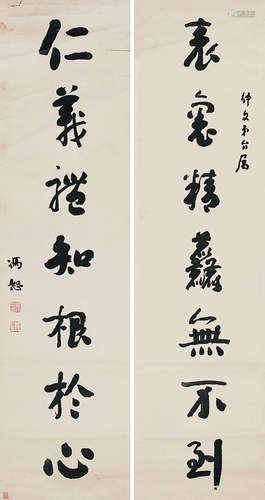 仲文弟台屬
表裏精麤無不到
仁義禮知根於心
馮恕